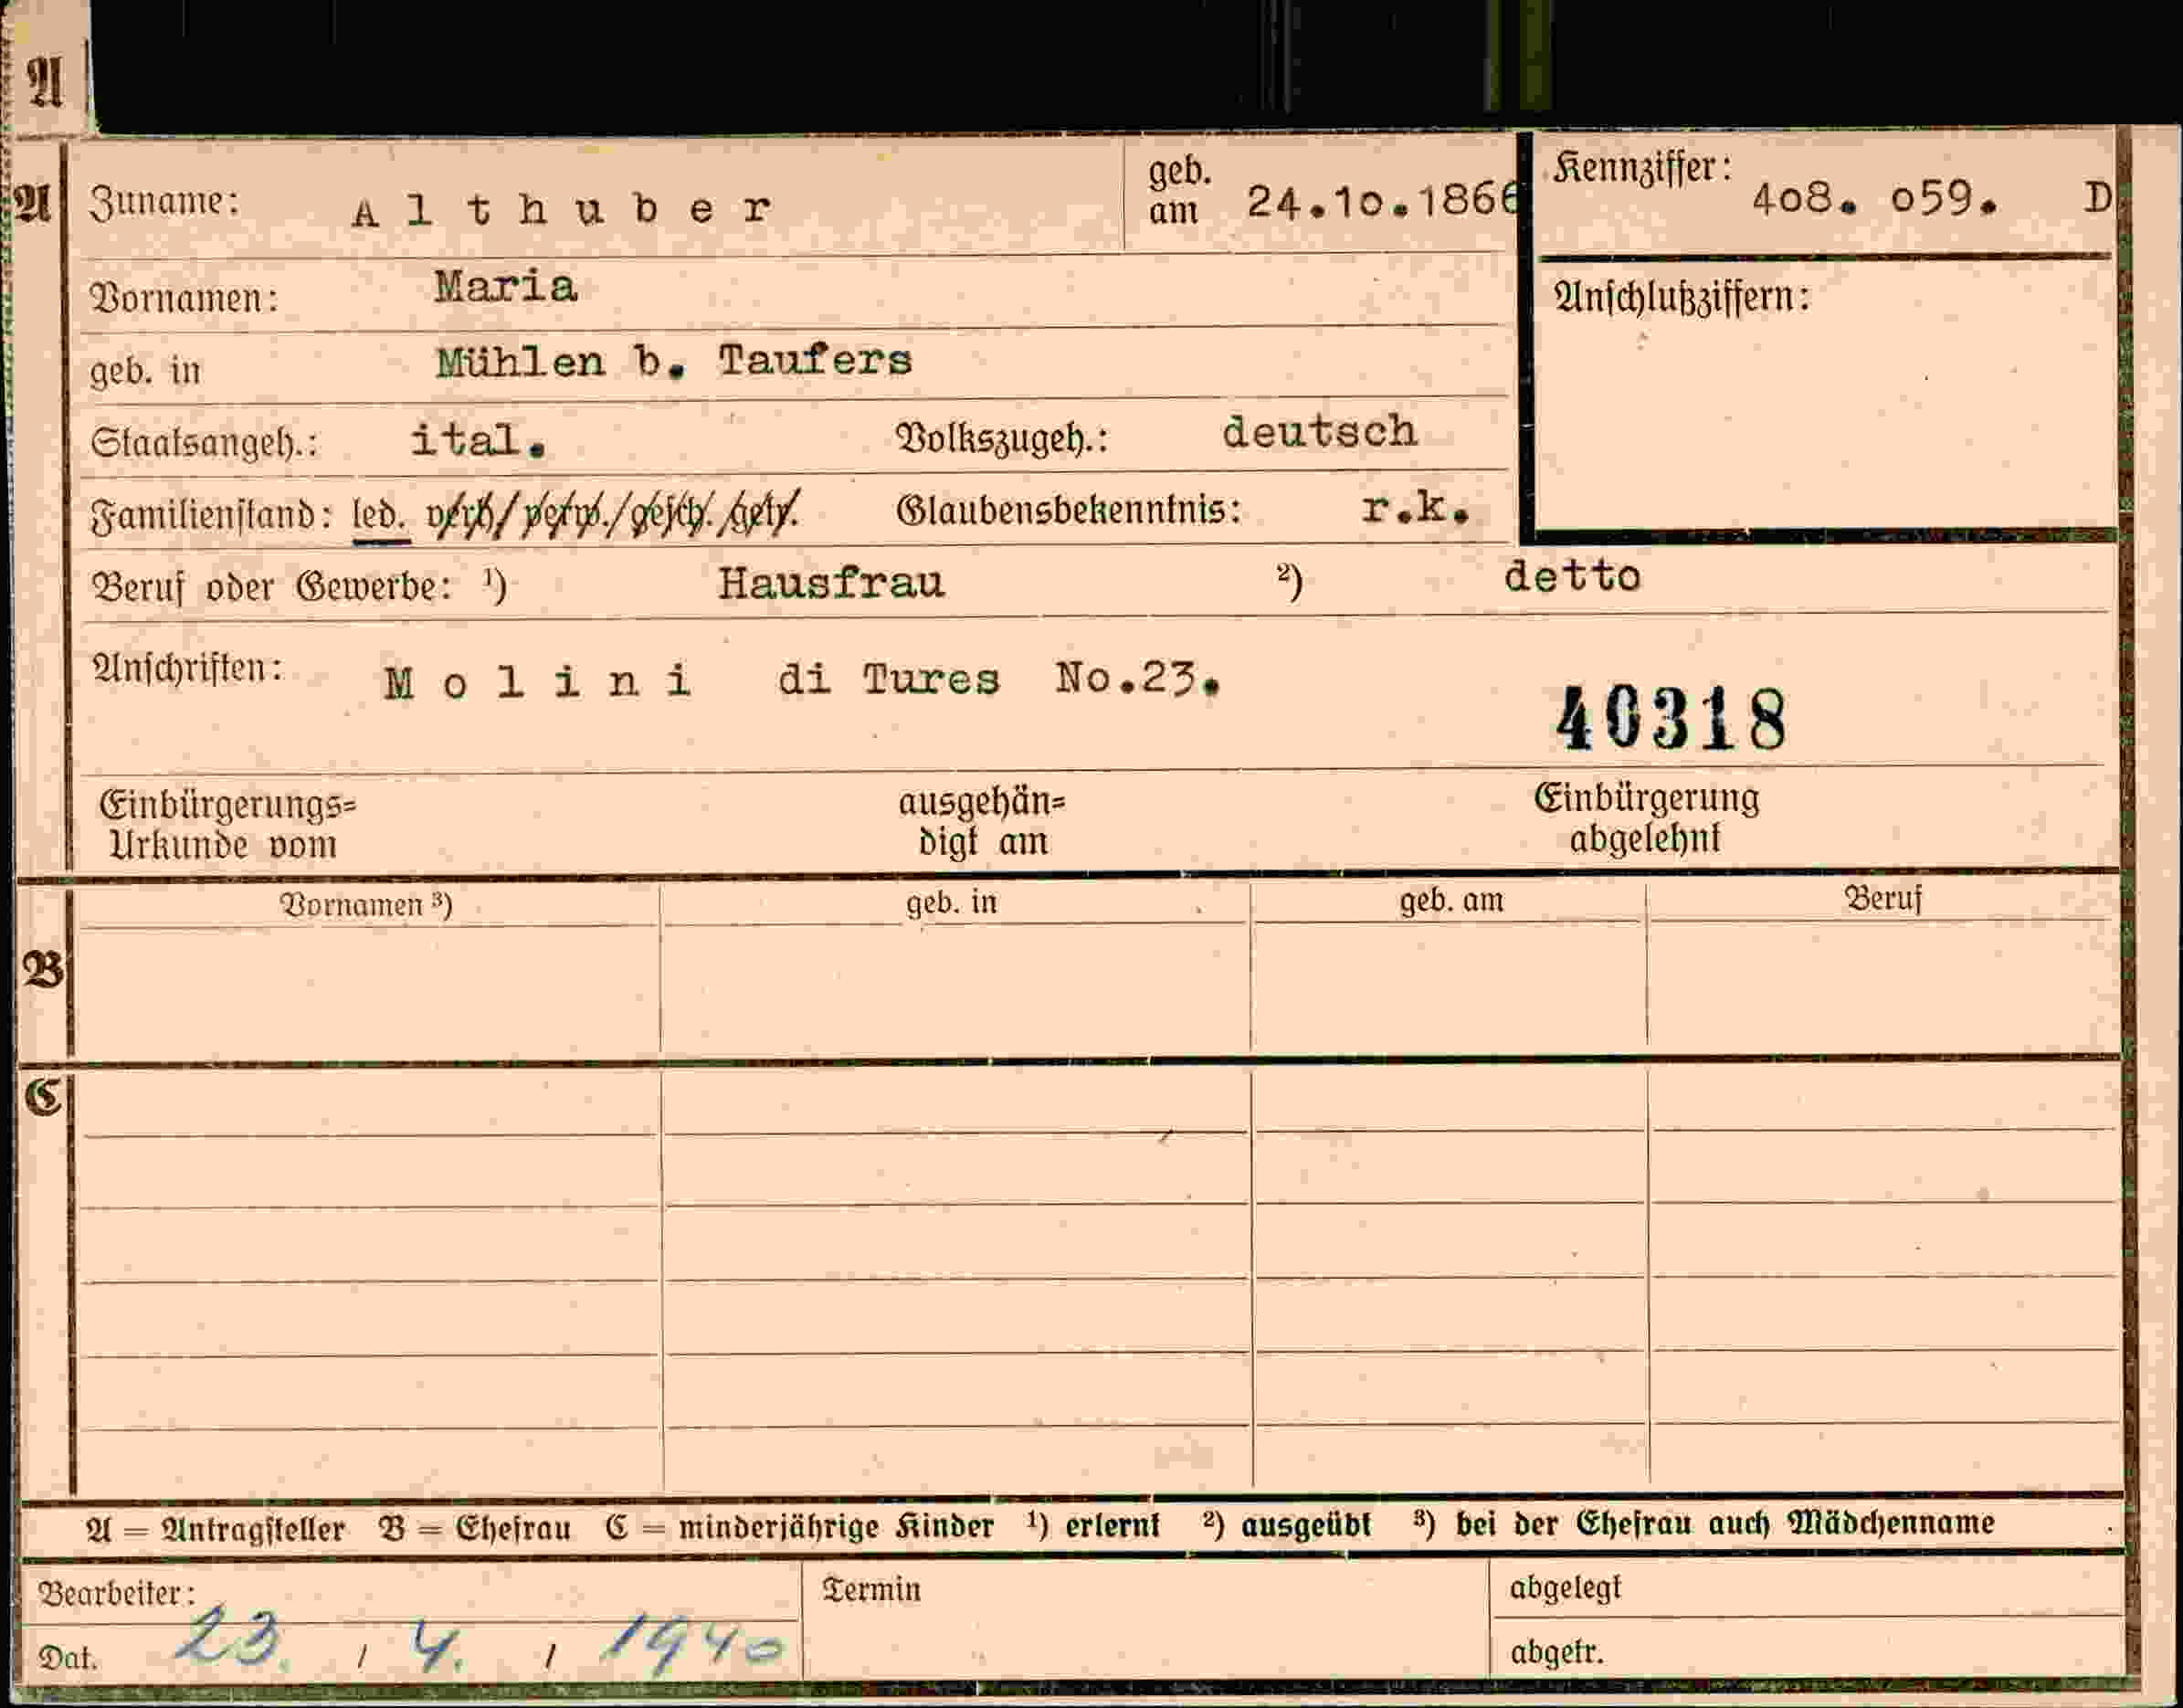 A
A
Zuname: Althuber geb. am 24.10.1866 Kennziffer: 408. 059. D
Vornamen: Maria Anschlußziffern:
geb. in Mühlen b. Taufers
Staatsangeh.: ital. Volkszugeh.: deutsch
Familienstand: led. verh/verw./gesch./getr. Glaubensbekenntnis: r.k.
Beruf oder Gewerbe: ¹) Hausfrau ²) detto
Anschriften: Molini di Tures No.23.
40318
Einbürgerungs= ausgehän= Einbürgerung
Urkunde vom digt am abgelehnt
B
Vornamen ³) geb. in geb. am Beruf
C
A = Antragsteller B = Ehefrau C = minderjährige Kinder ¹) erlernt ²) ausgeübt ³) bei der Ehefrau auch Mädchenname
Bearbeiter: Termin abgelegt
Dat. 23. / 4. / 1940 abgetr.